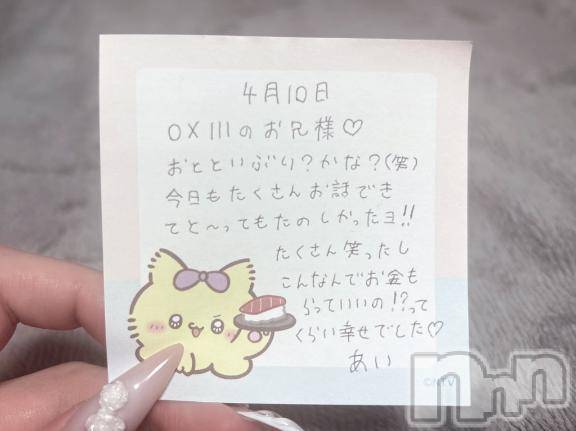 4月10日
OXIIIのお兄様♡
おとといぶり?かな?(笑)
今日もたくさんお話でき
てと〜ってもたのしかったヨ!!
たくさん笑ったし
こんなんでお金も
らっていいの!?って
くらい幸せでした♡
あい
©NTV
nnn